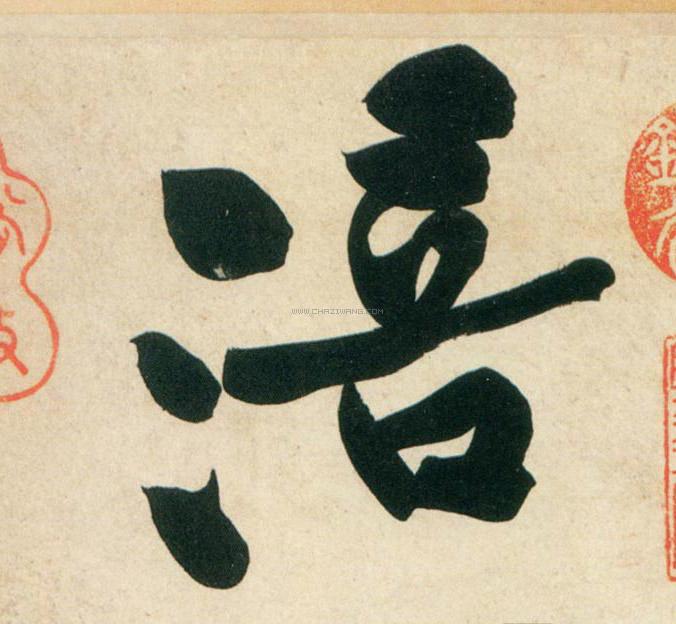 涪
WWW.CHAZIWANG.COM